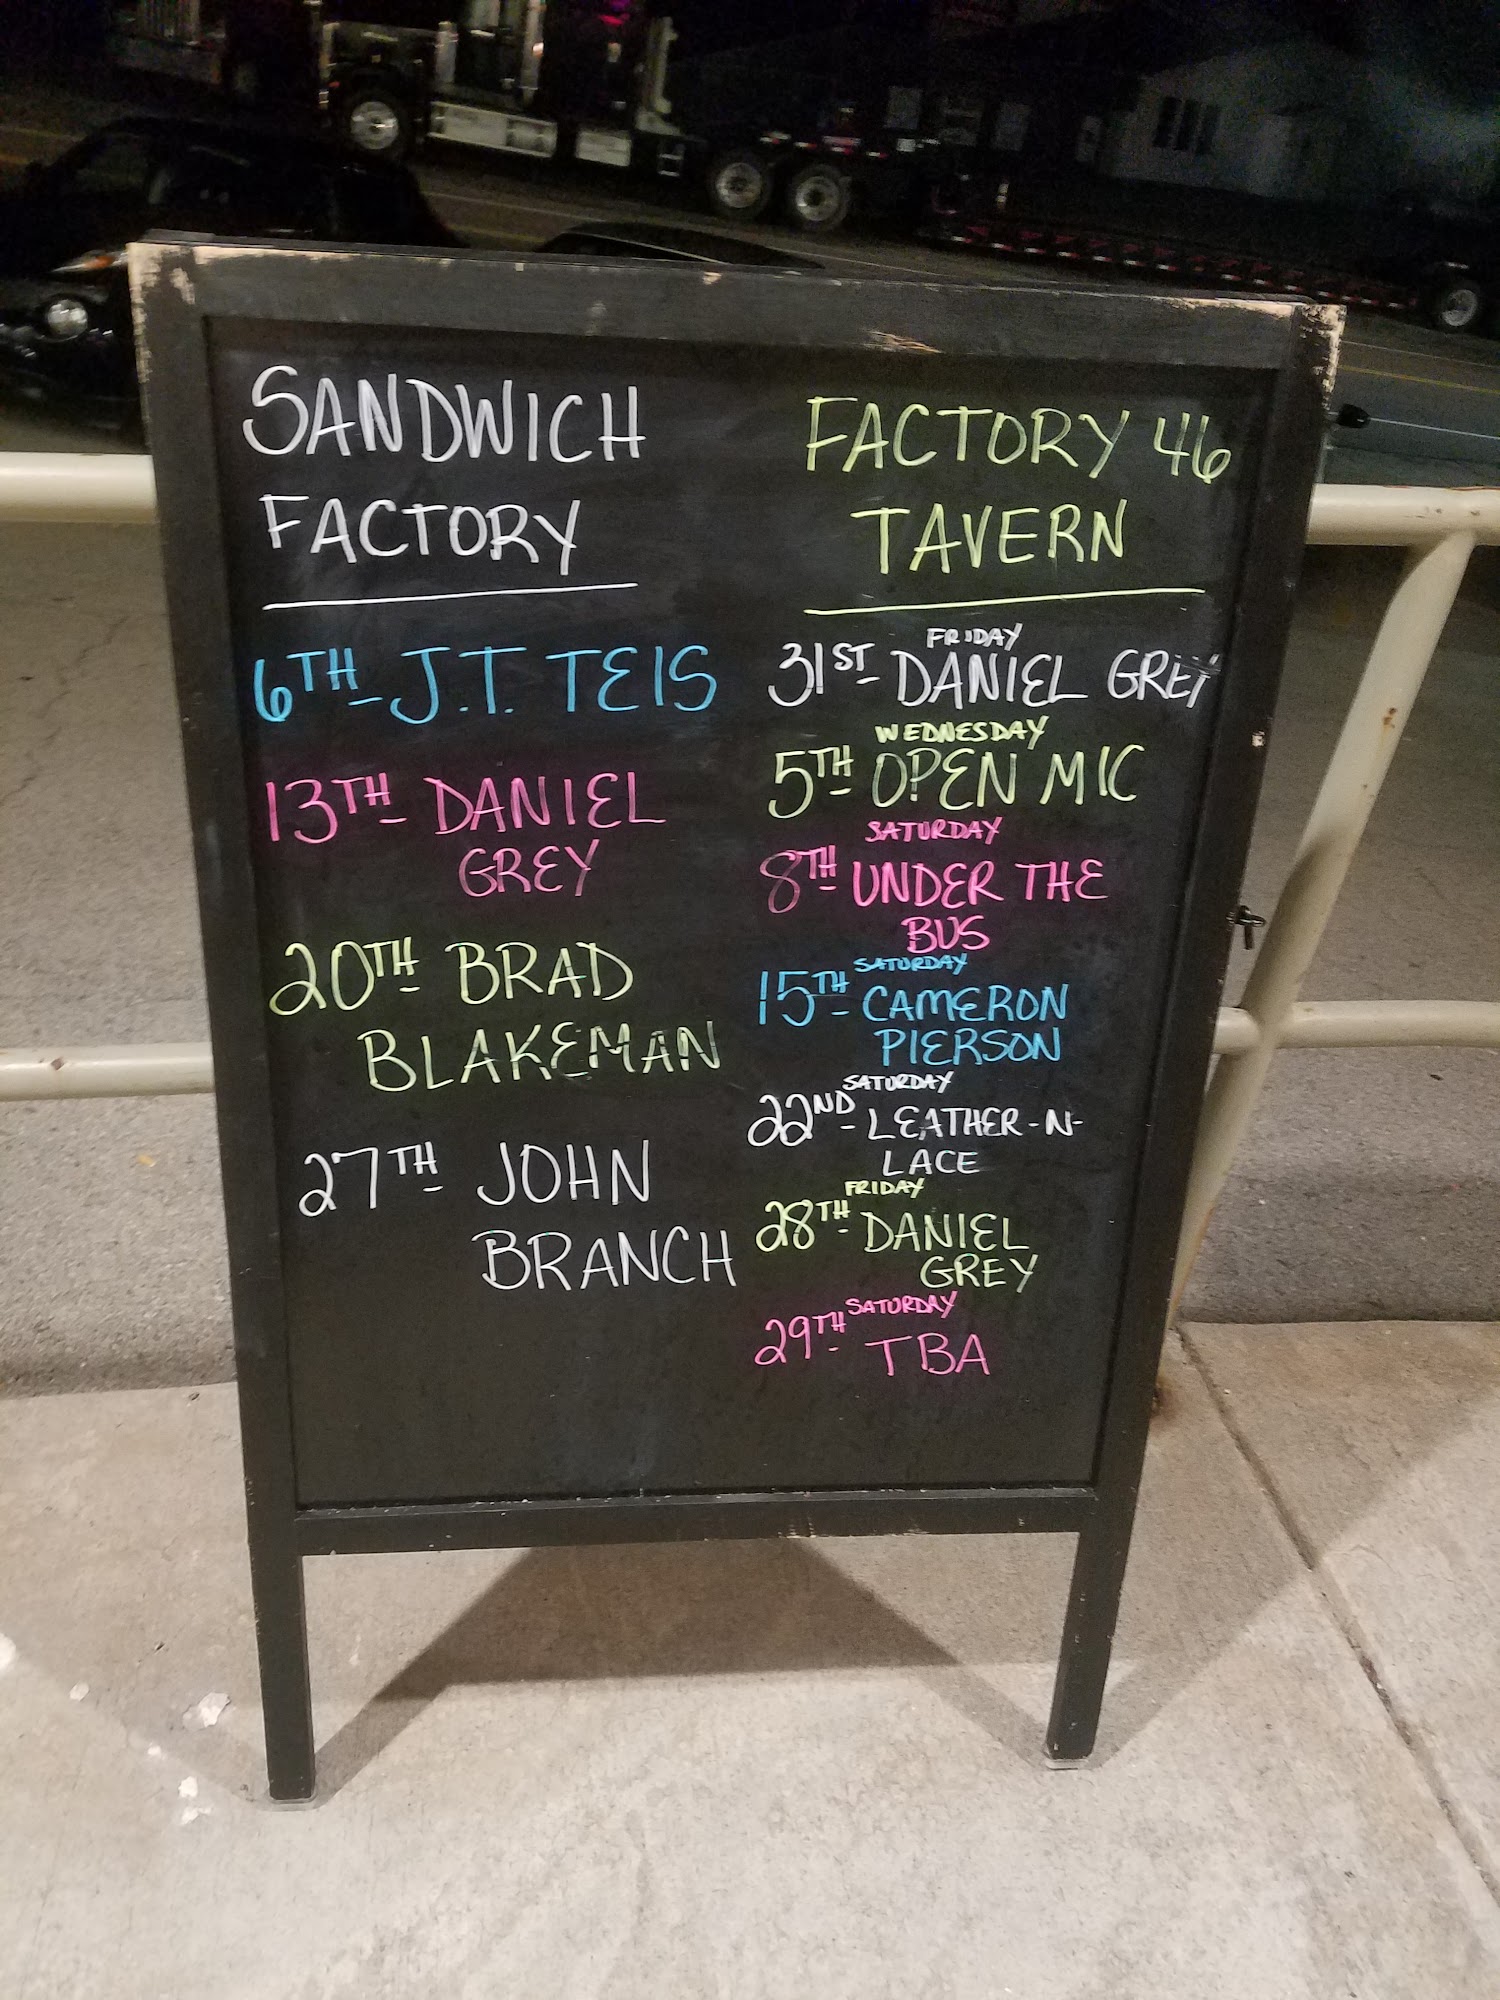 SANDWICH
FACTORY
6TH - J.T. TEIS
13TH - DANIEL
GREY
20TH - BRAD
BLAKEMAN
27TH - JOHN
BRANCH
FACTORY 46
TAVERN
FRIDAY
31ST - DANIEL GREY
WEDNESDAY
5TH - OPEN MIC
SATURDAY
8TH - UNDER THE
BUS
SATURDAY
15TH - CAMERON
PIERSON
SATURDAY
22ND - LEATHER-N-
LACE
FRIDAY
28TH - DANIEL
GREY
SATURDAY
29TH - TBA